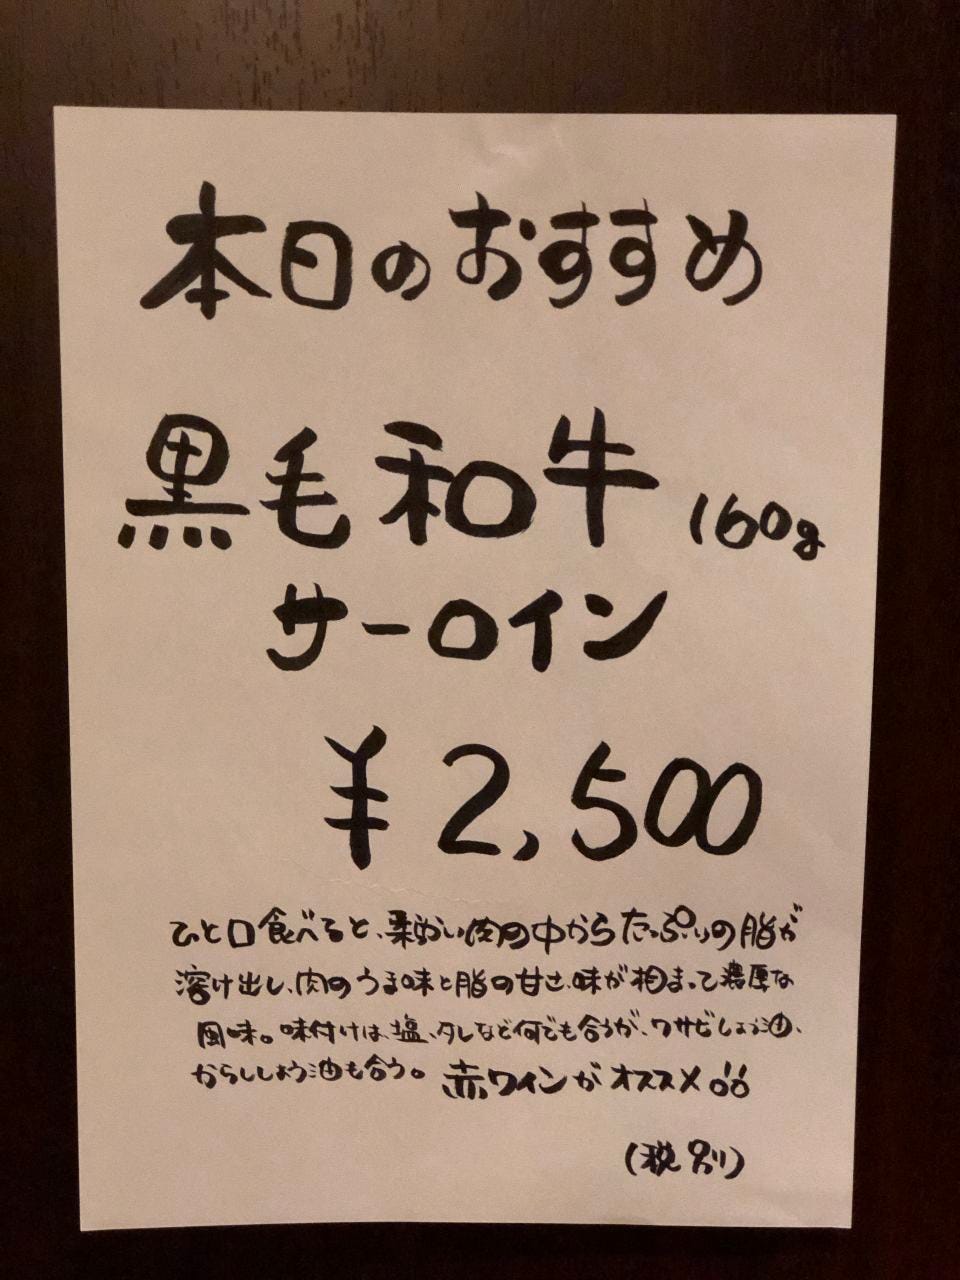 本日のおすすめ
黒毛和牛 160g
サーロイン
¥2,500
ひと口食べると、柔らかい肉の中からたっぷりの脂が
溶け出し、肉のうま味と脂の甘さ、味が相まって濃厚な
風味。味付けは、塩、タレなど何でも合うが、ワサビしょう油、
からししょう油も合う。赤ワインがオススメ!!
(税別)